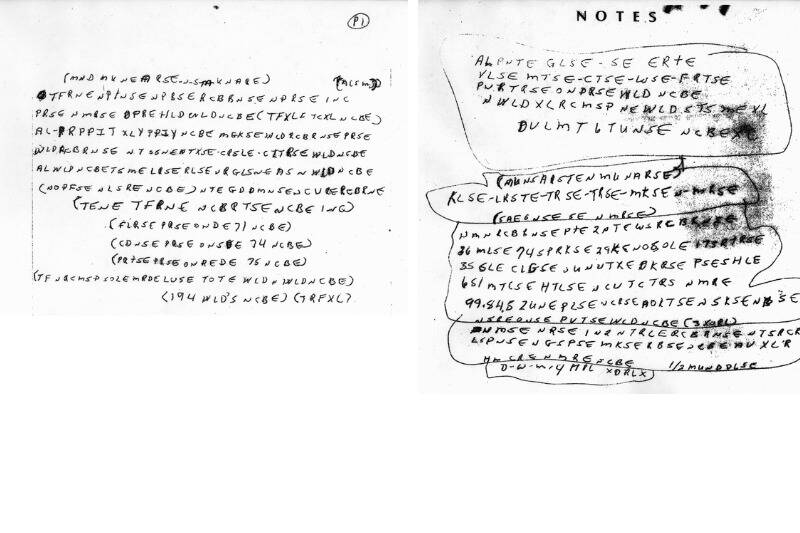 P1
(MNDMKNEARSE-N-S-M-KNARE) (ALCSM)
TFRNENPINSENPBSERCBBNSENPRSEINC
PRSENMRSEOPREHLDWLDNCBE(TFXLFTCXLNCBE)
AL-PRPPITXLYPPIYNCBEMGKSEWLDRCBRNSEPRSE
WLDRCBRNSENTSSNENTXSE-CRSLE-CITRSEWLDNCBE
ALWLDNCBETSMELRSERLSEURGLSNEASNWLDNCBE
(NOPFSENLSRENCBE)NTEGDDMNSENCURERCBRNE
(TENETFRNENCBRTSENCBEING)
(FLRSEPRSEONDE71NCBE)
(CDNSEPRSEONSDE74NCBE)
(PRTSEPRSEONREDE75NCBE)
(TFNRCMSPSOLEMRDELUSETOTEWLDNWLDNCBE)
(194WLD'SNCBE)(TRFXL)
NOTES
ALPNTE GLSE-SE ERTE
VLSE MTSE-CTSE-WSE-FRTSE
PNRTRSEONDRSEWLDNCBE
NWLDXLRCMSPNEWLDSTSMEXL
DULMT6TUNSENCBEXC
(MUNSARSTENMUNARSE)
KLSE-LRSTE-TRSE-TRSE-MKSEN-MRSE
(SAEGNSESENMRSE)
NMNRCBRNSEPTE2PTEWSRCBRNSE
36MLSE74SPRKSE29KENOSOLE173RTRSE
35GLECLGSEUNUTXEDKRSEPSESHLE
651MTCSEHTLSENCUTCTRSNMRE
99.84.52UNEPLSENCRSEAOLTSENSKSENBSE
NSREONSEPVTSEWLDNCBE(3XORL)
NMSENRSEIN2NTRLERCBRNSENTSRCR
LSPNSENGSPSEMKSERBSENCBEAVXLR
HMCRENMRENCBE 1/2MUNDPLSE
D-W-M-4MIL XDRLX